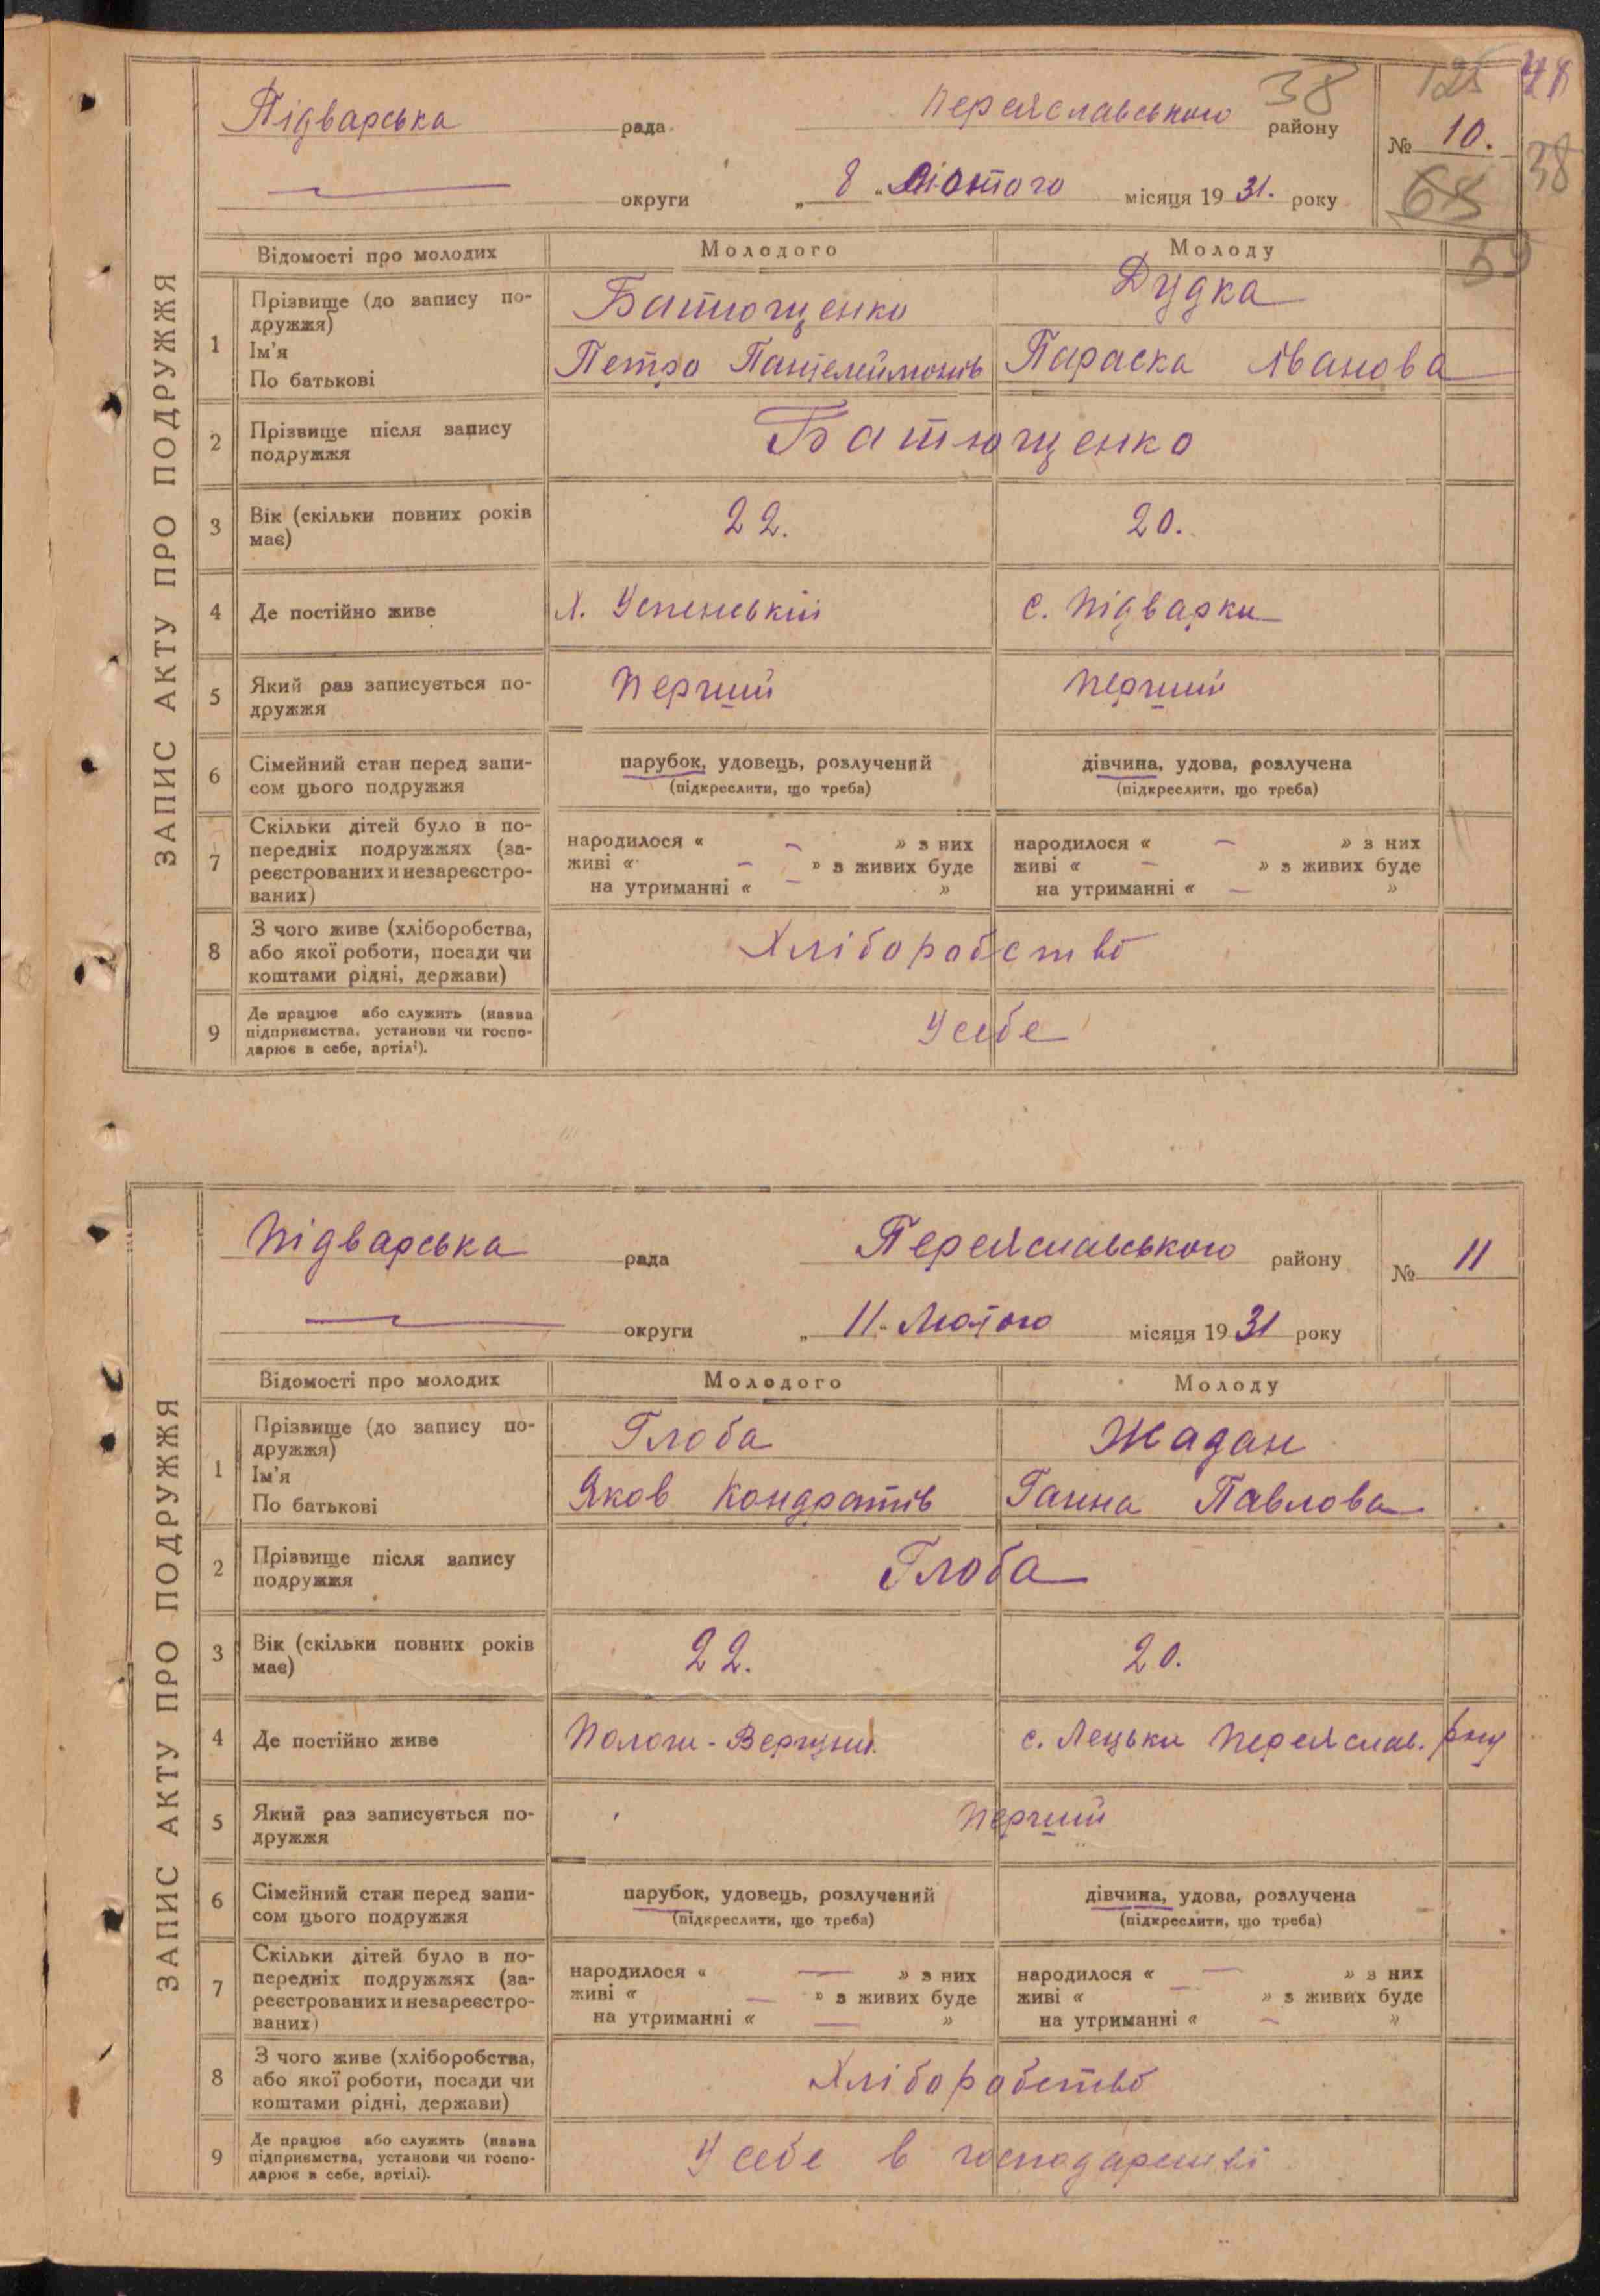 125 48
Підварська рада Переяславського району 38
№ 10. 38
округи „ 8 " Лютого місяця 1931. року
68
59
ЗАПИС АКТУ ПРО ПОДРУЖЖЯ
Відомості про молодих Молодого Молоду
1 Прізвище (до запису по-
дружжя)
Ім'я
По батькові
Батющенко Дудка
Петро Пантелеймонів Параска Іванова
2 Прізвище після запису
подружжя
Батющенко
3 Вік (скільки повних років
має)
22. 20.
4 Де постійно живе х. Успенський с. Підварки
5 Який раз записується по-
дружжя
Перший Перший
6 Сімейний стан перед запи-
сом цього подружжя
парубок, удовець, розлучений дівчина, удова, розлучена
(підкреслити, що треба) (підкреслити, що треба)
7 Скільки дітей було в по-
передніх подружжях (за-
реєстрованих и незареєстро-
ваних)
народилося « — » з них народилося « — » з них
живі « — » з живих буде живі « — » з живих буде
на утриманні « — » на утриманні « — »
8 З чого живе (хліборобства,
або якої роботи, посади чи
коштами рідні, держави)
Хліборобство
9 Де працює або служить (назва
підприємства, установи чи госпо-
дарює в себе, артілі).
У себе
Підварська рада Переяславського району № 11
округи „ 11 " Лютого місяця 1931 року
ЗАПИС АКТУ ПРО ПОДРУЖЖЯ
Відомості про молодих Молодого Молоду
1 Прізвище (до запису по-
дружжя)
Ім'я
По батькові
Глоба Жадан
Яков Кондратів Ганна Павлова
2 Прізвище після запису
подружжя
Глоба
3 Вік (скільки повних років
має)
22. 20.
4 Де постійно живе Пологи-Вергуни. с. Лецьки Переяслав. р-ну
5 Який раз записується по-
дружжя
Перший
6 Сімейний стан перед запи-
сом цього подружжя
парубок, удовець, розлучений дівчина, удова, розлучена
(підкреслити, що треба) (підкреслити, що треба)
7 Скільки дітей було в по-
передніх подружжях (за-
реєстрованих и незареєстро-
ваних)
народилося « — » з них народилося « — » з них
живі « — » з живих буде живі « — » з живих буде
на утриманні « — » на утриманні « — »
8 З чого живе (хліборобства,
або якої роботи, посади чи
коштами рідні, держави)
Хліборобство
9 Де працює або служить (назва
підприємства, установи чи госпо-
дарює в себе, артілі).
У себе в господарстві